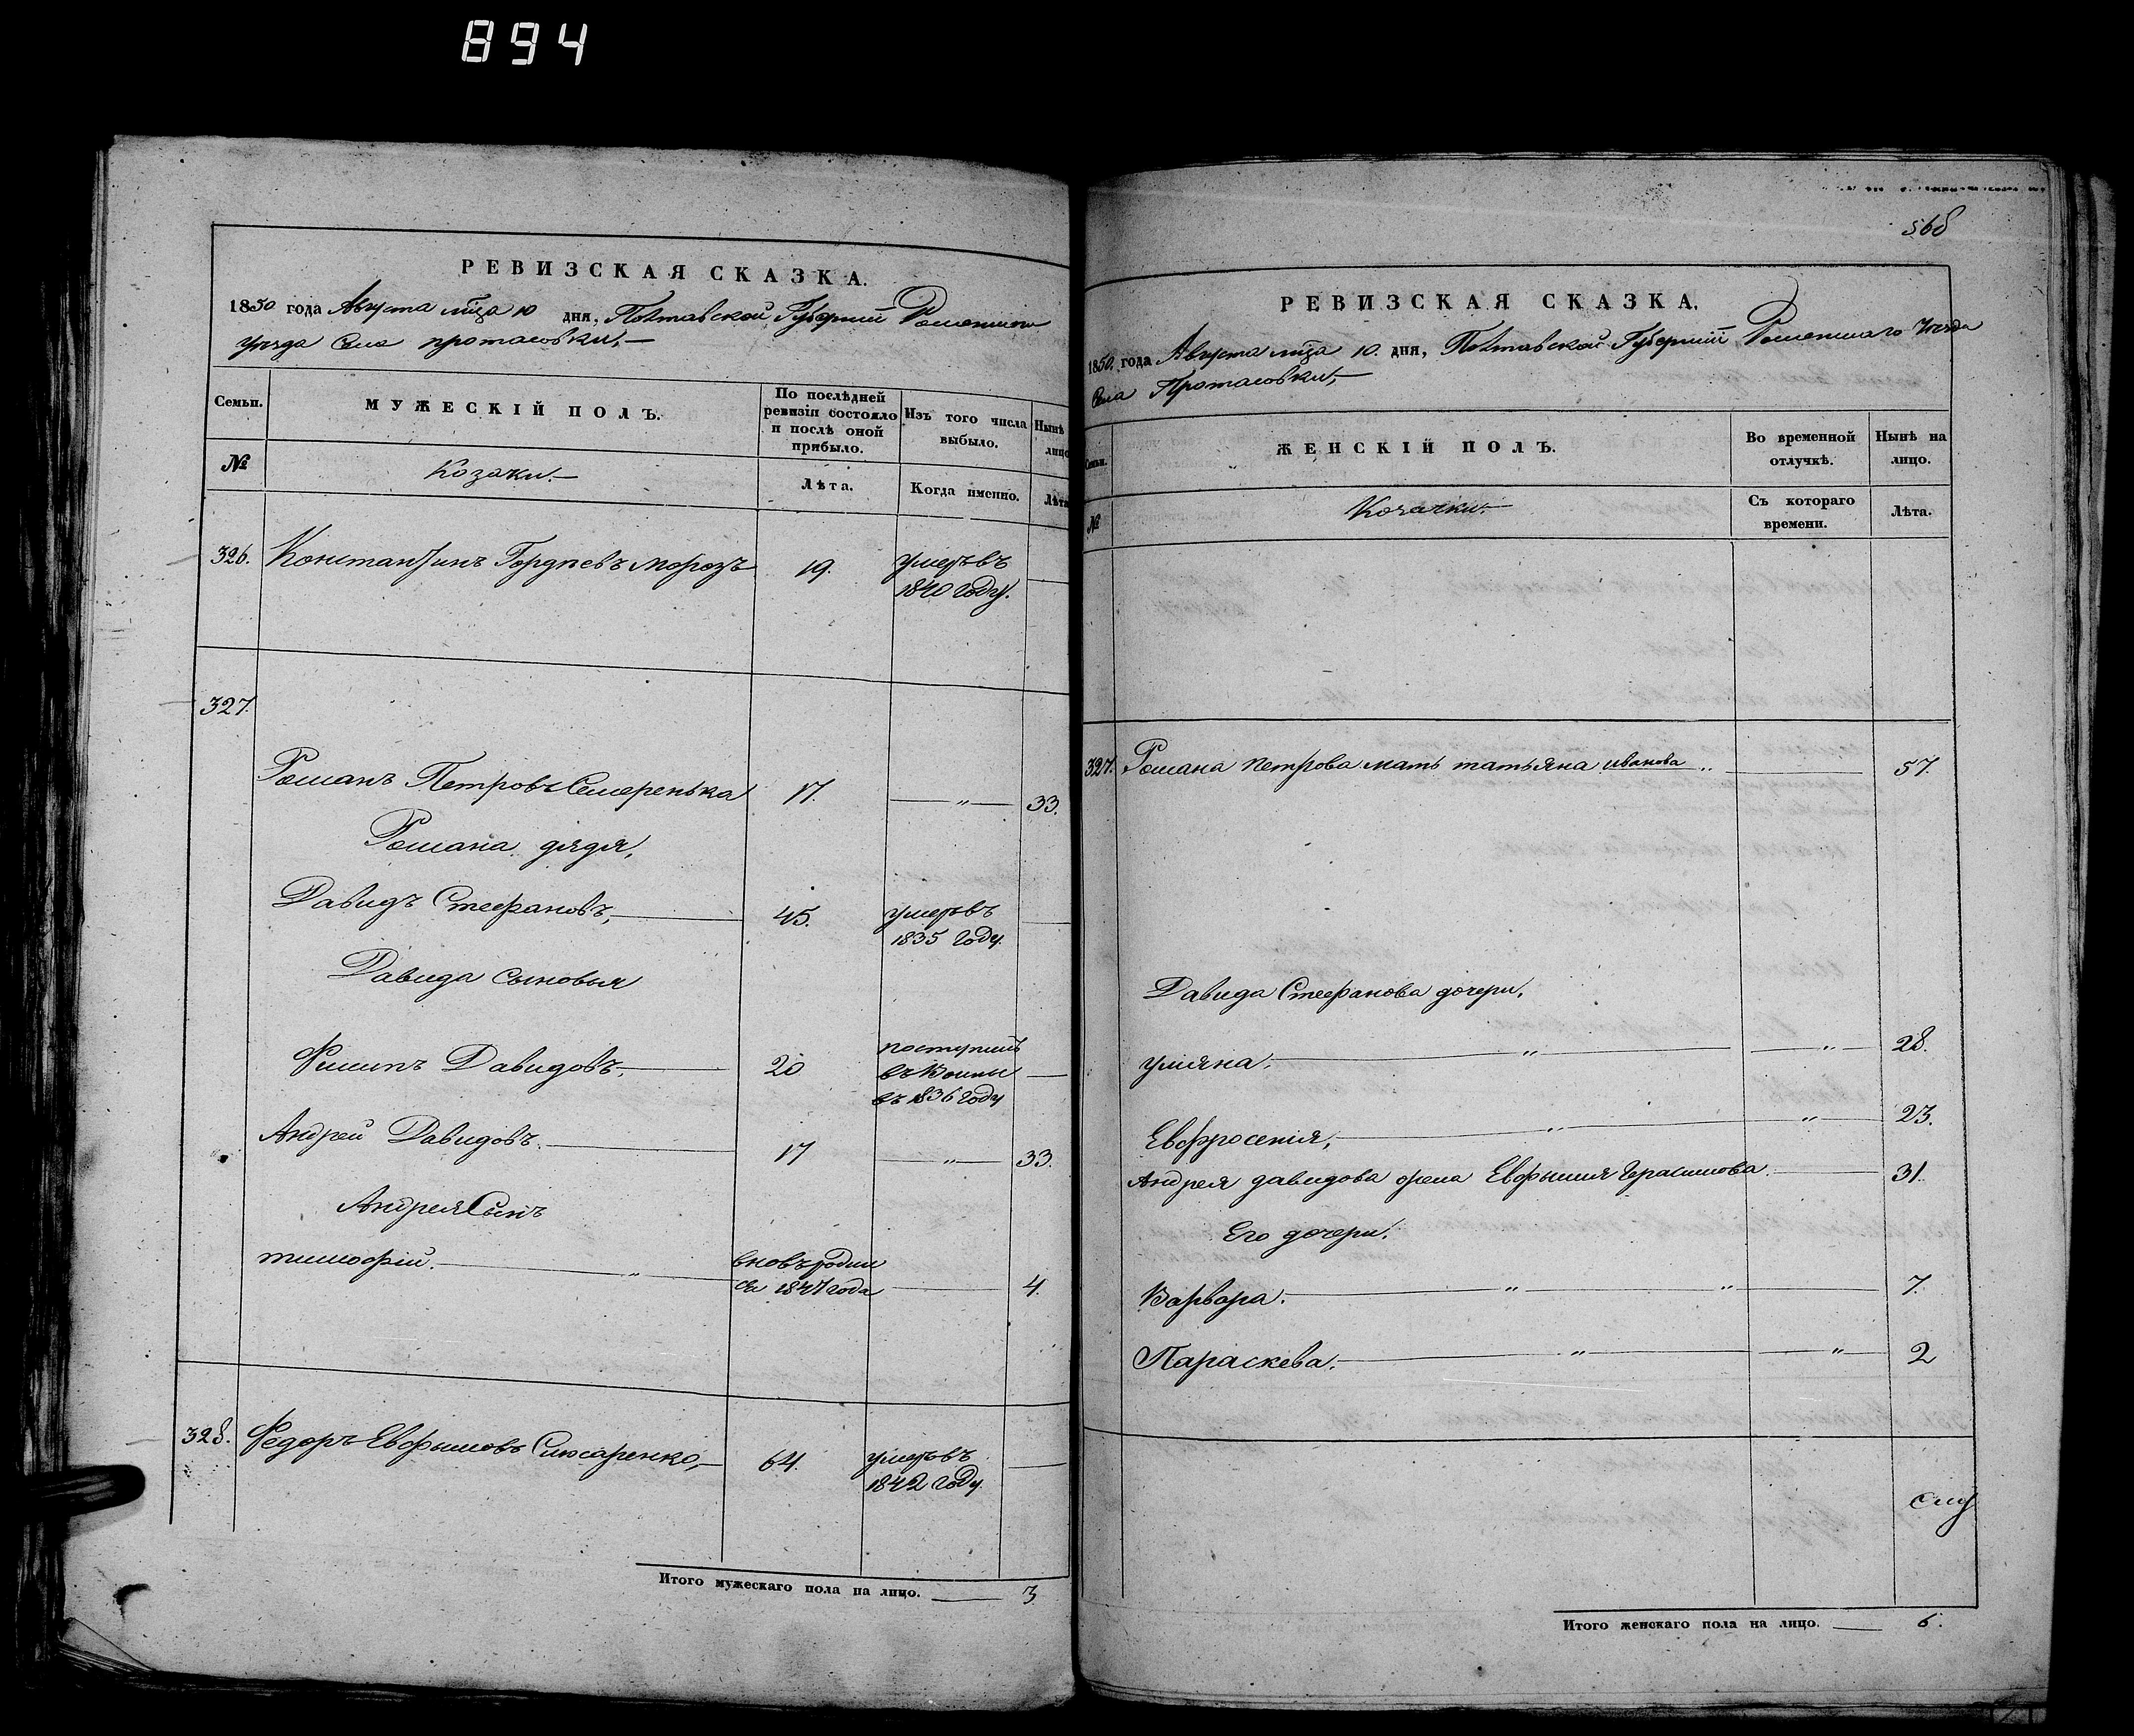 894
РЕВИЗСКАЯ СКАЗКА.
1850 года Августа мца 10 дня, Полтавской Губернии Роменскаго
уезда Села протасовки,—
Семьи. МУЖЕСКІЙ ПОЛЪ. По послѣдней ревизіи состояло и послѣ оной прибыло. Изъ того числа выбыло. Нынѣ лицо
№ Козаки.— Лѣта. Когда именно. Лѣта
326. Константинъ Гордѣевъ морозъ 19. умеръ въ
1840 году.
327.
Романъ Петровъ Семеренька 17. — „ — 33.
Романа дядя,
Давидъ Стефановъ, 45. умеръ въ
1835 году.
Давида сыновья
Филипъ Давидовъ. 20 поступилъ
въ Воины
въ 1836 году
Андрей Давидовъ. 17 — „ — 33.
Андрея Сынъ
тимофій. „ вновь родил
ся 1847 года 4.
328. Федоръ Евфимовъ Слюсаренко, 64. умеръ въ
1842 году.
Итого мужескаго пола на лицо. 3
568
РЕВИЗСКАЯ СКАЗКА.
1850. года Августа мца 10. дня, Полтавской Губерніи Роменскаго Уезда
Села Протасовки,—
Семьи. ЖЕНСКІЙ ПОЛЪ. Во временной отлучкѣ. Нынѣ на лицо.
№ Козачки.— Съ котораго времени. Лѣта.
327. Романа петрова мать татьяна иванова „ 57.
Давида Стефанова дочери,
улияна. „ „ 28.
Евфросенія, „ „ 23.
Андрея давидова жена Евфимия Герасимова. 31.
Его дочери.
Варвара. „ „ 7.
Параскева. „ „ 2
Итого женскаго пола на лицо. 6.